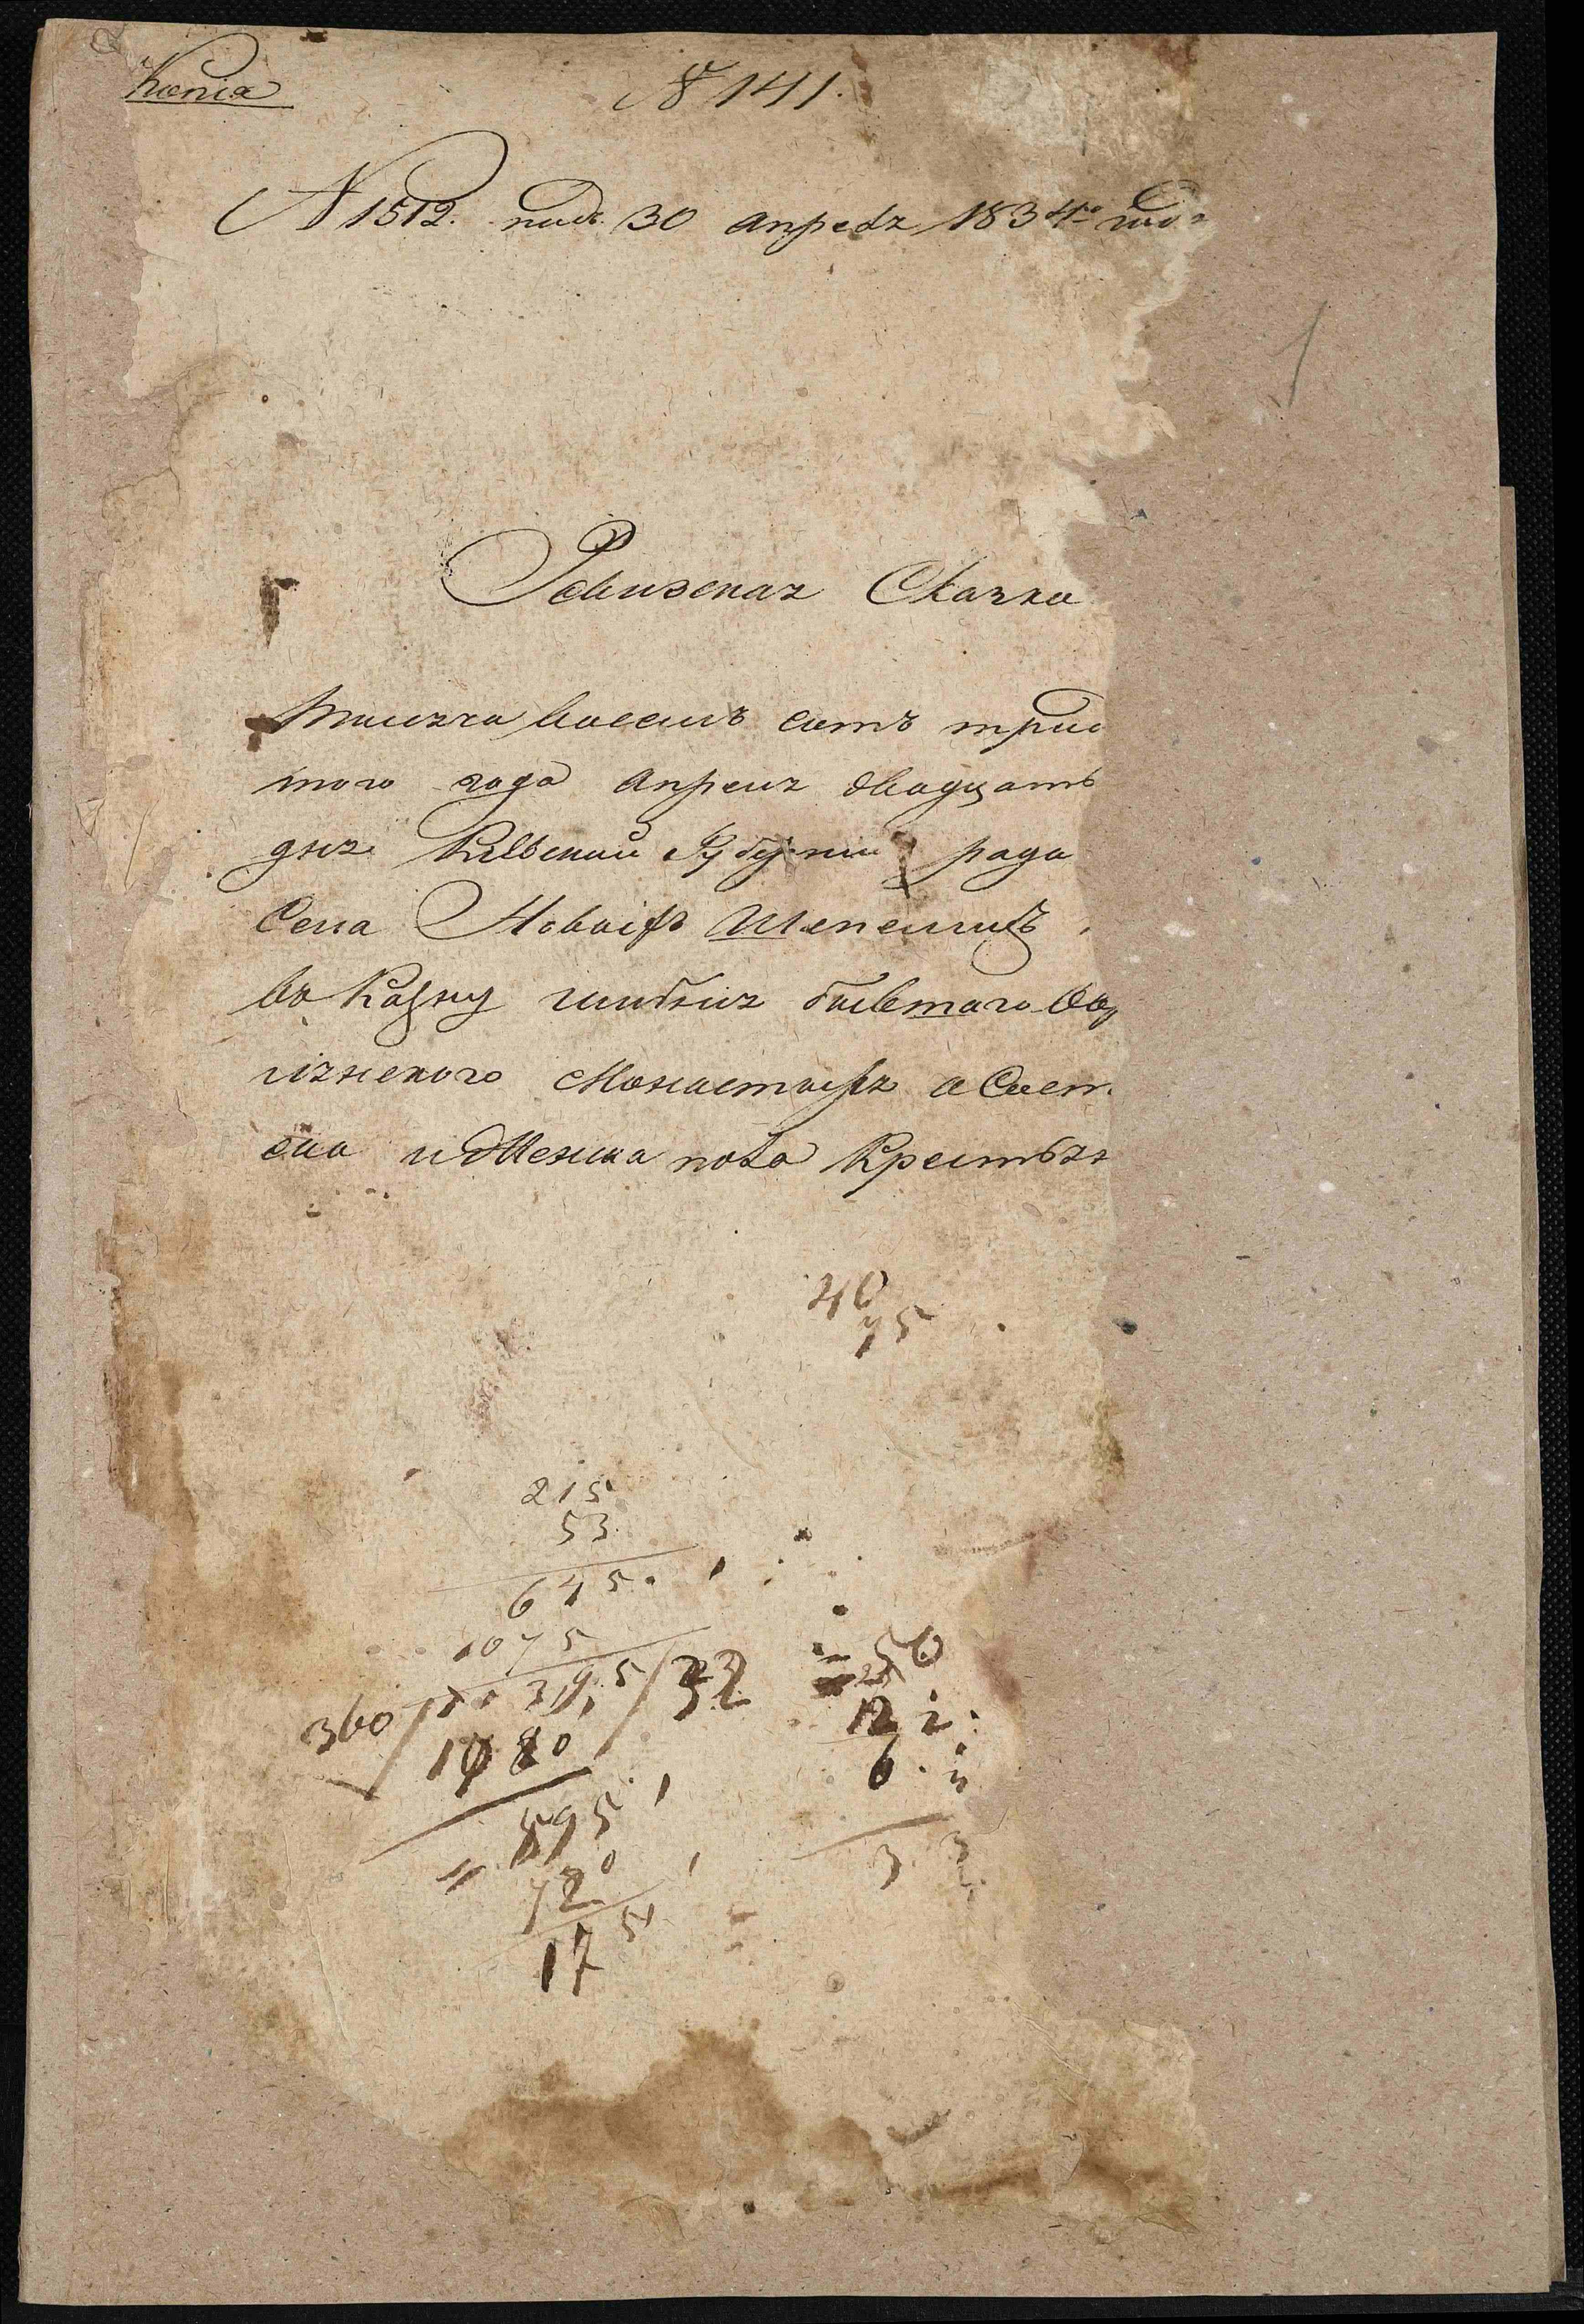 Копія
№ 141.
№ 1512. под. 30 апреля 1834го го
1
Ревизская Сказка
Тысяча восемь сотъ трид
того года апреля двадцать
дня Кіевской Губерніи рад
Села Новыхъ Шепеличъ
въ Казну
Монастыря о Сост
ска и Женска пола Крестьян
40
75
215
53
645.
1075
11395 / 32
360
1080
595
720
175
50
25
12
6
3